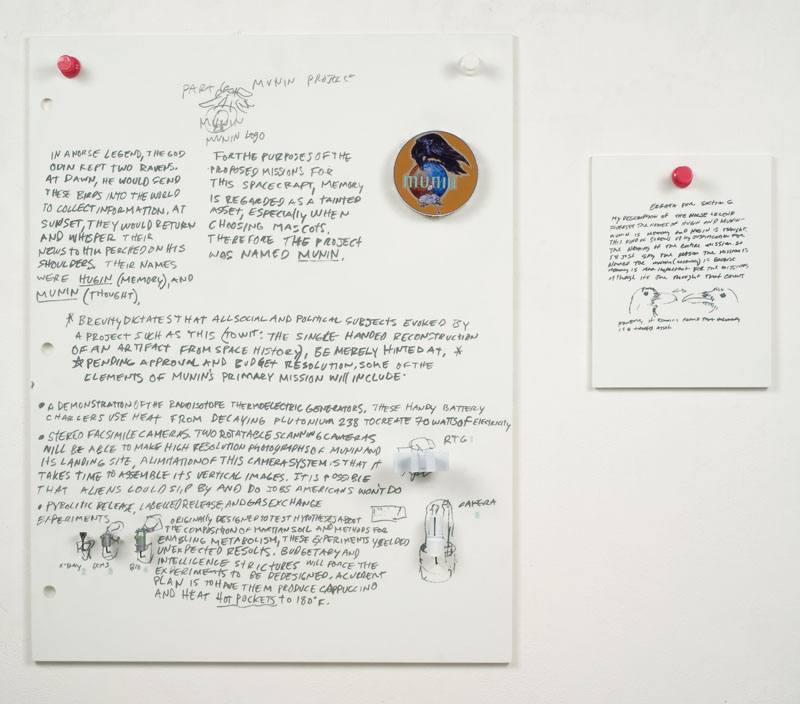 MUNIN PROJECT
MUNIN
MUNIN LOGO
IN A NORSE LEGEND, THE GOD
ODIN KEPT TWO RAVENS.
AT DAWN, HE WOULD SEND
THESE BIRDS INTO THE WORLD
TO COLLECT INFORMATION. AT
SUNSET, THEY WOULD RETURN
AND WHISPER THEIR
NEWS TO HIM PERCHED ON HIS
SHOULDERS. THEIR NAMES
WERE HUGIN (MEMORY), AND
MUNIN (THOUGHT),
FOR THE PURPOSES OF THE
PROPOSED MISSIONS FOR
THIS SPACECRAFT, MEMORY
IS REGARDED AS A TAINTED
ASSET, ESPECIALLY WHEN
CHOOSING MASCOTS.
THEREFORE THE PROJECT
WAS NAMED MUNIN.
MUNIN
* BREVITY DICTATES THAT ALL SOCIAL AND POLITICAL SUBJECTS EVOKED BY
A PROJECT SUCH AS THIS (TO WIT: THE SINGLE HANDED RECONSTRUCTION
OF AN ARTIFACT FROM SPACE HISTORY), BE MERELY HINTED AT. *
* PENDING APPROVAL AND BUDGET RESOLUTION, SOME OF THE
ELEMENTS OF MUNIN'S PRIMARY MISSION WILL INCLUDE:
• A DEMONSTRATION OF THE RADIOISOTOPE THERMOELECTRIC GENERATORS. THESE HANDY BATTERY
CHARGERS USE HEAT FROM DECAYING PLUTONIUM 238 TO CREATE 70 WATTS OF ELECTRICITY
• STEREO FACSIMILE CAMERAS. TWO ROTATABLE SCANNING CAMERAS
WILL BE ABLE TO MAKE HIGH RESOLUTION PHOTOGRAPHS OF MUNIN AND
ITS LANDING SITE, A LIMITATION OF THIS CAMERA SYSTEM IS THAT IT
TAKES TIME TO ASSEMBLE ITS VERTICAL IMAGES. IT IS POSSIBLE
THAT ALIENS COULD SLIP BY AND DO JOBS AMERICANS WON'T DO
RTG
• PYROLITIC RELEASE, LABELLED RELEASE, AND GAS EXCHANGE
EXPERIMENTS
ORIGINALLY DESIGNED TO TEST HYPOTHESES ABOUT
THE COMPOSITION OF MARTIAN SOIL AND METHODS FOR
ENABLING METABOLISM, THESE EXPERIMENTS YIELDED
UNEXPECTED RESULTS. BUDGETARY AND
INTELLIGENCE STRICTURES WILL FORCE THE
EXPERIMENTS TO BE REDESIGNED. A CURRENT
PLAN IS TO HAVE THEM PRODUCE CAPPUCCINO
AND HEAT HOT POCKETS TO 180°F.
X-RAY
BIO
CAMERA
ERRATA FOR SECTION 6
MY DESCRIPTION OF THE NORSE LEGEND
REVERSES THE NAMES OF HUGIN AND MUNIN-
MUNIN IS MEMORY AND HUGIN IS THOUGHT.
THIS ERROR SCREWS UP MY JUSTIFICATION FOR
THE NAMING OF THE ENTIRE MISSION. SO
LET'S JUST SAY THE REASON THE MISSION IS
NAMED THE MUNIN (MEMORY) IS BECAUSE
MEMORY IS IMPORTANT FOR THE MISSION,
ALTHOUGH ITS THE THOUGHT THAT COUNTS
HOWEVER, IT REMAINS THAT MEMORY
IS A TAINTED ASSET.